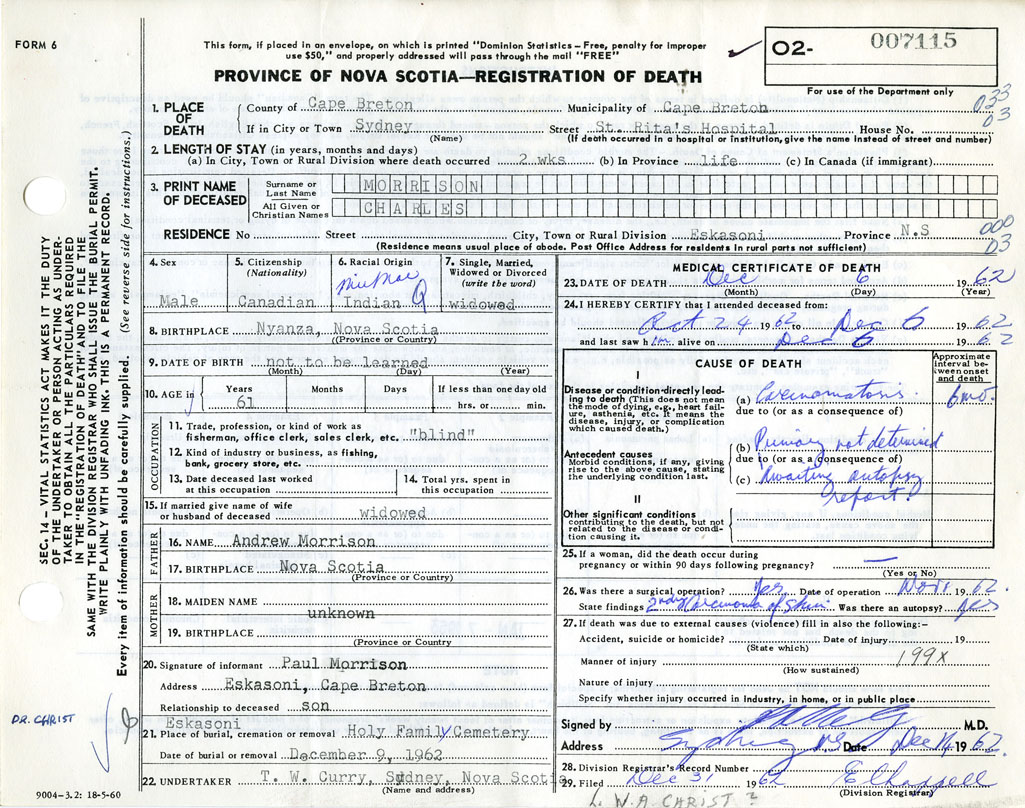 FORM 6
This form, if placed in an envelope, on which is printed "Dominion Statistics – Free, penalty for improper
use $50," and properly addressed will pass through the mail "FREE"
O2- 007115
For use of the Department only
PROVINCE OF NOVA SCOTIA—REGISTRATION OF DEATH
1. PLACE OF DEATH
County of Cape Breton Municipality of Cape Breton 033
If in City or Town Sydney Street St. Rita's Hospital House No. 03
(Name) (If death occurred in a hospital or institution, give the name instead of street and number)
2. LENGTH OF STAY (in years, months and days)
(a) In City, Town or Rural Division where death occurred 2 wks (b) In Province life (c) In Canada (if immigrant)
3. PRINT NAME OF DECEASED
Surname or Last Name MORRISON
All Given or Christian Names CHARLES
RESIDENCE No Street City, Town or Rural Division Eskasoni Province N.S 000
03
(Residence means usual place of abode. Post Office Address for residents in rural parts not sufficient)
4. Sex Male
5. Citizenship (Nationality) Canadian
6. Racial Origin Mic Mac Indian
7. Single, Married, Widowed or Divorced (write the word) widowed
8. BIRTHPLACE Nyanza, Nova Scotia
((Province or Country)
9. DATE OF BIRTH not to be learned
(Month) (Day) (Year)
10. AGE in Years 61 Months Days If less than one day old hrs. or min.
OCCUPATION
11. Trade, profession, or kind of work as
fisherman, office clerk, sales clerk, etc. "blind"
12. Kind of industry or business, as fishing,
bank, grocery store, etc.
13. Date deceased last worked
at this occupation
14. Total yrs. spent in
this occupation
15. If married give name of wife
or husband of deceased widowed
FATHER
16. NAME Andrew Morrison
17. BIRTHPLACE Nova Scotia
(Province or Country)
MOTHER
18. MAIDEN NAME
unknown
19. BIRTHPLACE
(Province or Country)
20. Signature of informant Paul Morrison
Address Eskasoni, Cape Breton
Relationship to deceased son
Eskasoni
21. Place of burial, cremation or removal Holy Family Cemetery
Date of burial or removal December 9, 1962
22. UNDERTAKER T. W. Curry, Sydney, Nova Scotia
(Name and address)
MEDICAL CERTIFICATE OF DEATH
23. DATE OF DEATH Dec 6 1962
(Month) (Day) (Year)
24. I HEREBY CERTIFY that I attended deceased from:
Oct 24 1962 to Dec 6 1962
and last saw him alive on Dec 6 1962
CAUSE OF DEATH
Approximate interval between onset and death
I
Disease or condition directly leading to death (This does not mean
the mode of dying, e.g., heart failure, asthenia, etc. It means the
disease, injury, or complication which caused death.)
(a) Carcinomatosis. 6 mo.
due to (or as a consequence of)
Antecedent causes
Morbid conditions, if any, giving rise to the above cause, stating the underlying condition last.
(b) Primary not determined
due to (or as a consequence of)
(c) Awaiting autopsy
report.
II
Other significant conditions
contributing to the death, but not related to the disease or condition causing it.
25. If a woman, did the death occur during
pregnancy or within 90 days following pregnancy? —
(Yes or No)
26. Was there a surgical operation? Yes Date of operation 1962.
State findings 2ndry Carcinoma of Skin Was there an autopsy? Yes
27. If death was due to external causes (violence) fill in also the following:–
Accident, suicide or homicide? Date of injury 19
(State which)
Manner of injury 199X
(How sustained)
Nature of injury
Specify whether injury occurred in Industry, in home, or in public place
Signed by M.D.
Address Sydney NS Date Dec 14 1962
28. Division Registrar's Record Number
29. Filed Dec 31 1962
(Division Registrar)
W. A CHRIST ?
SEC. 14 – VITAL STATISTICS ACT MAKES IT THE DUTY
OF THE UNDERTAKER OR PERSON ACTING AS UNDER-
TAKER TO OBTAIN ALL THE PARTICULARS REQUIRED
IN THE "REGISTRATION OF DEATH" AND TO FILE THE
SAME WITH THE DIVISION REGISTRAR WHO SHALL ISSUE THE BURIAL PERMIT.
WRITE PLAINLY WITH UNFADING INK. THIS IS A PERMANENT RECORD.
Every item of information should be carefully supplied. (See reverse side for instructions.)
DR. CHRIST
9004–3.2: 18-5-60